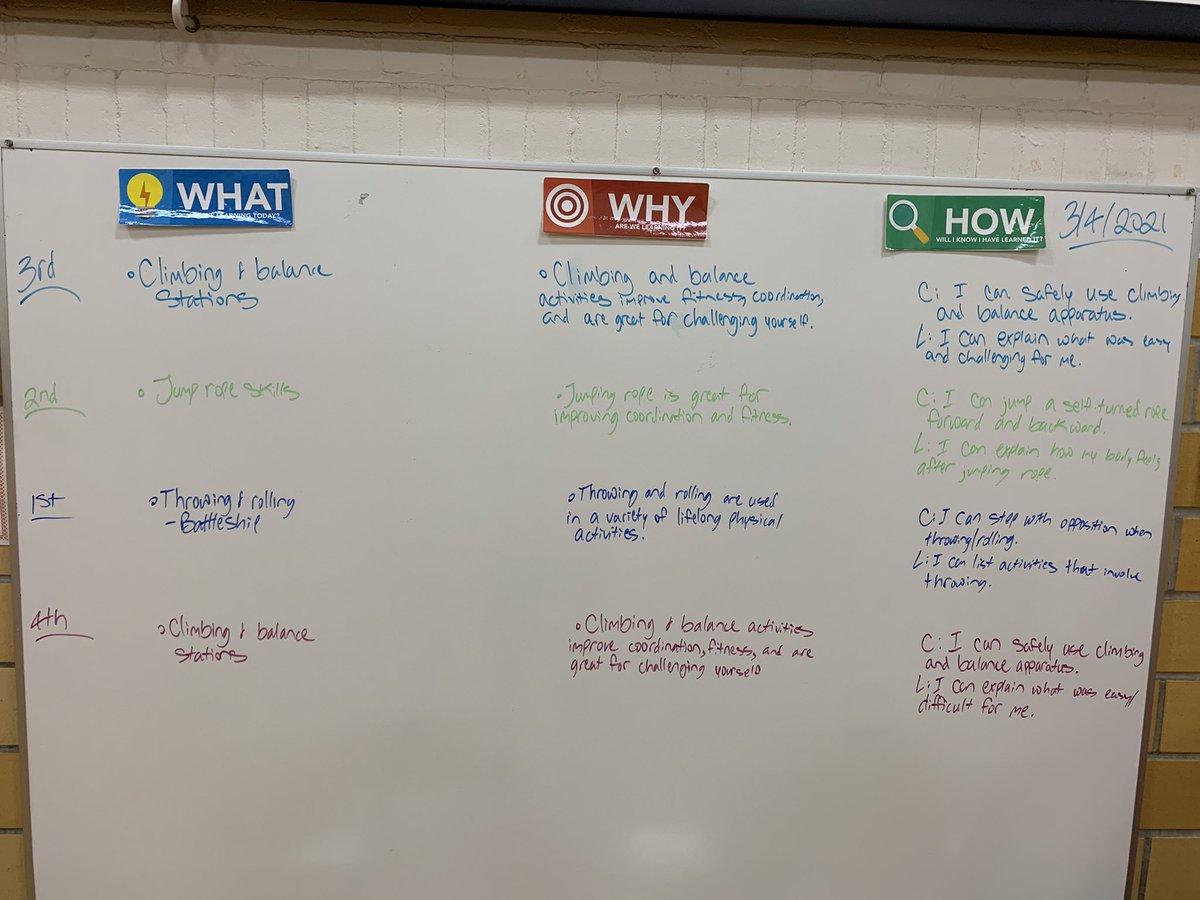 WHAT
LEARNING TODAY?
WHY
ARE WE LEARNING IT?
HOW
WILL I KNOW I HAVE LEARNED IT?
3/4/2021
3rd
• Climbing & balance
stations
• Climbing and balance
activities improve fitness, coordination,
and are great for challenging yourself.
C: I can safely use climbing
and balance apparatus.
L: I can explain what was easy
and challenging for me.
2nd
• Jump rope skills
• Jumping rope is great for
improving coordination and fitness.
C: I can jump a self-turned rope
forward and backward.
L: I can explain how my body feels
after jumping rope.
1st
• Throwing & rolling
- Battleship
• Throwing and rolling are used
in a variety of lifelong physical
activities.
C: I can step with opposition when
throwing/rolling.
L: I can list activities that involve
throwing.
4th
• Climbing & balance
stations
• Climbing & balance activities
improve coordination, fitness, and are
great for challenging yourself
C: I can safely use climbing
and balance apparatus.
L: I can explain what was easy/
difficult for me.